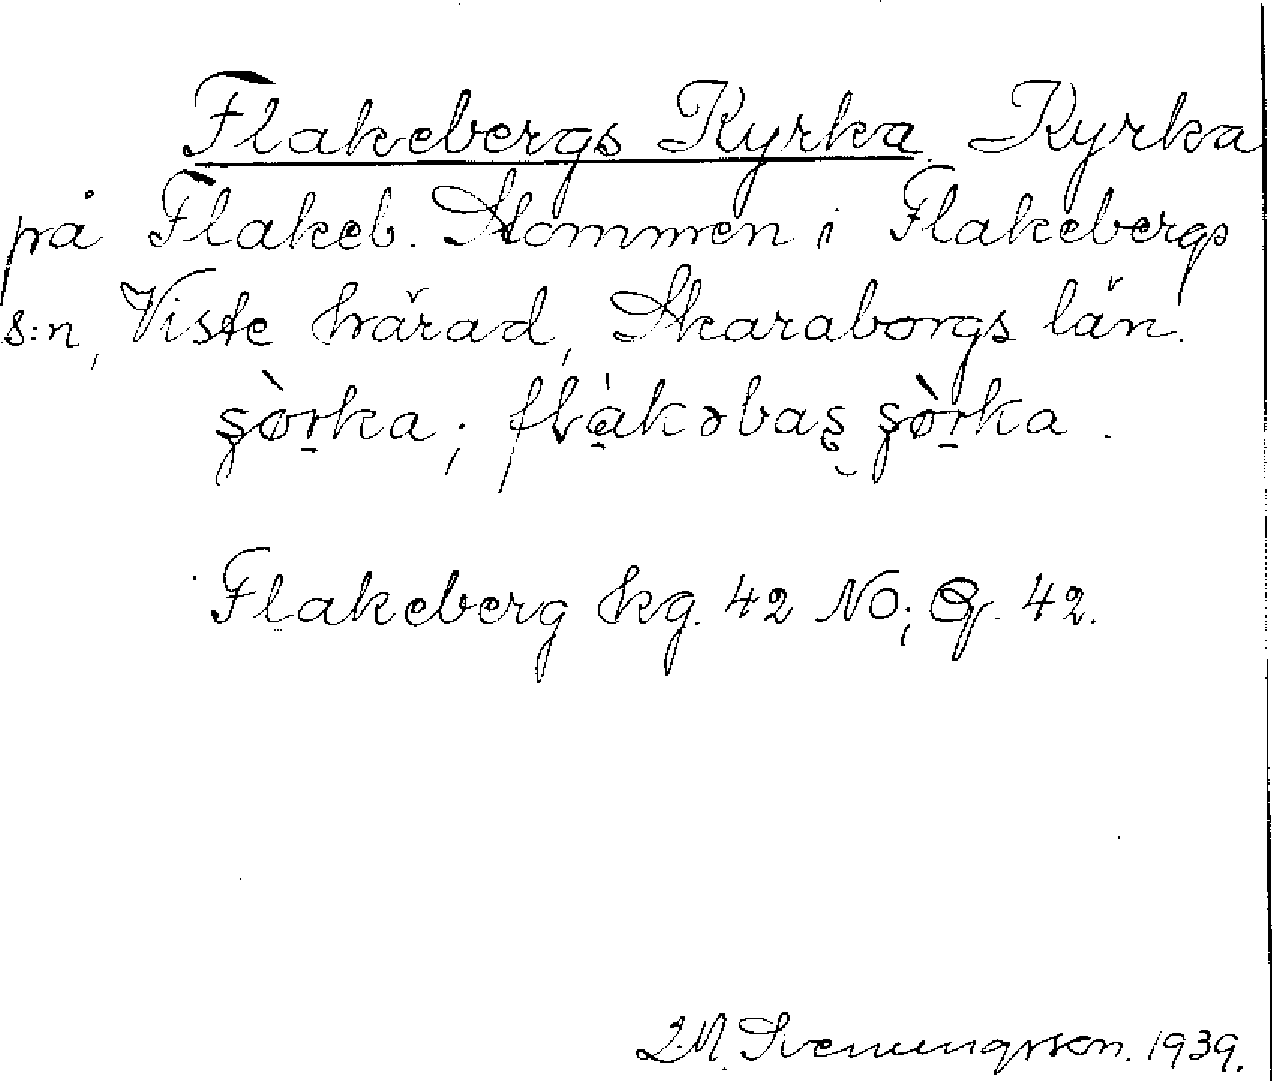 Flakebergs Kyrka. Kyrka
på Flakeb. Stommen i Flakebergs
s:n, Viste härad, Skaraborgs län.
Flakeberg kg. 42 NO; G. 42.
Svenungsson. 1939.